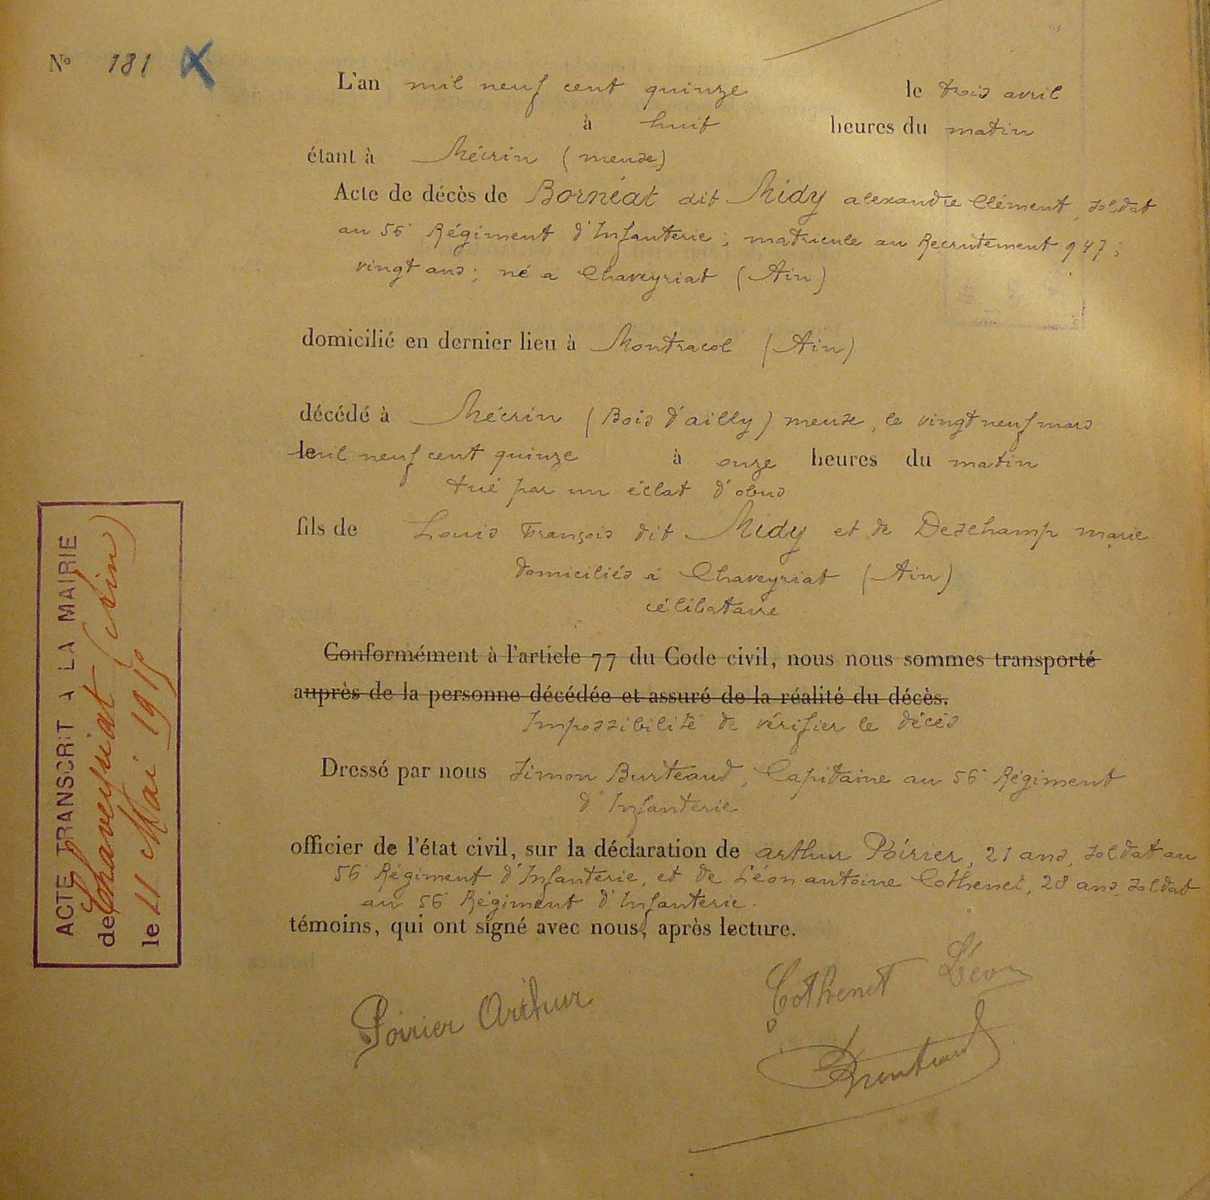 N° 181 X
L'an mil neuf cent quinze le trois avril
à huit heures du matin
étant à Mécrin (meuse)
Acte de décès de Bornéat dit Midy alexandre Clément, soldat
au 56e Régiment d'Infanterie; matricule au Recrutement 947;
vingt ans; né a Chaveyriat (Ain)
domicilié en dernier lieu à Montracol (Ain)
décédé à Mécrin (Bois d'ailly) meuse, le vingt neuf mars
mil neuf cent quinze à onze heures du matin
tué par un éclat d'obus
fils de Louis François dit Midy et de Deschamp marie
domiciliés à Chaveyriat (Ain)
célibataire
Conformément à l'article 77 du Code civil, nous nous sommes transporté
auprès de la personne décédée et assuré de la réalité du décès.
Impossibilité de vérifier le décès
Dressé par nous Simon Burteaud, Capitaine au 56e Régiment
d'Infanterie
officier de l'état civil, sur la déclaration de arthur Poirier, 21 ans, soldat au
56e Régiment d'Infanterie, et de Léon antoine Cothenet, 28 ans, soldat
au 56e Régiment d'Infanterie.
témoins, qui ont signé avec nous, après lecture.
Poirier Arthur
Cothenet Léon
ACTE TRANSCRIT A LA MAIRIE
de Chaveyriat (Ain)
le 21 Mai 1915